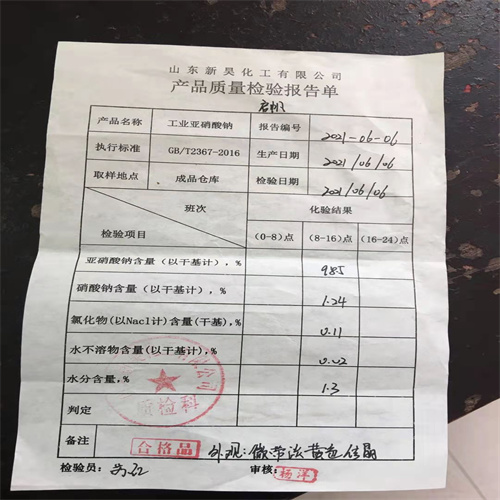 山东新昊化工有限公司
产品质量检验报告单
产品名称 工业亚硝酸钠 报告编号 2021-06-06
执行标准 GB/T2367-2016 生产日期 2021/06/06
取样地点 成品仓库 检验日期 2021/06/06
班次 化验结果
检验项目 (0-8)点 (8-16)点 (16-24)点
亚硝酸钠含量(以干基计),% 98.5
硝酸钠含量(以干基计),% 1.24
氯化物(以Nacl计)含量(干基),% 0.11
水不溶物含量(以干基计),% 0.02
水分含量,% 1.3
质检科
判定
备注 合格品 外观:微带淡黄色结晶
检验员: 审核: 杨洋